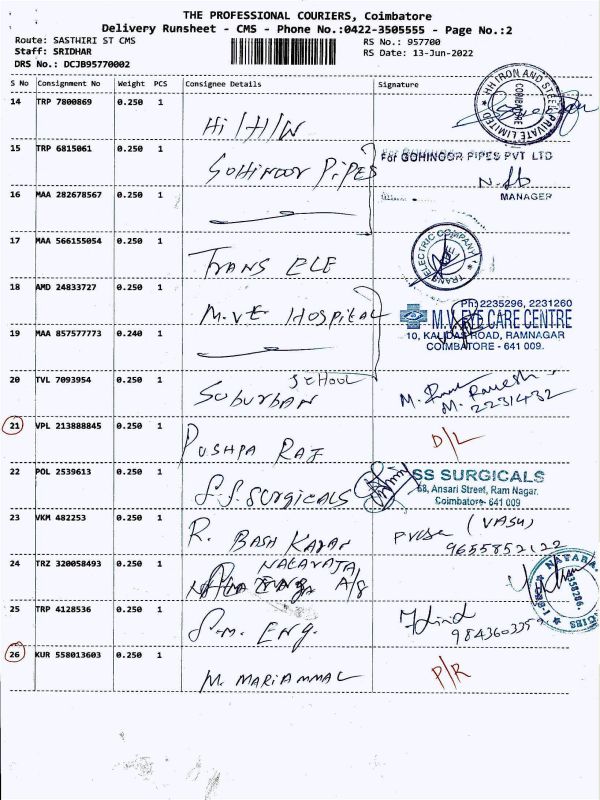 THE PROFESSIONAL COURIERS, Coimbatore
Delivery Runsheet - CMS - Phone No.:0422-3505555 - Page No.:2
Route: SASTHIRI ST CMS
RS No.: 957700
Staff: SRIDHAR
RS Date: 13-Jun-2022
DRS No.: DCJB95770002
S No Consignment No Weight PCS Consignee Details Signature
14 TRP 7800869 0.250 1 Hi/H/W
HH IRON AND STEEL PRIVATE LIMITED COIMBATORE
15 TRP 6815061 0.250 1 GOHINOOR PIPES
For GOHINOOR PIPES PVT LTD
16 MAA 282678567 0.250 1
MANAGER
17 MAA 566155054 0.250 1 TRANS ELE
TRANS ELECTRIC COMPANY
18 AMD 24833727 0.250 1 M.VE HOSPITAL
Ph: 2235296, 2231260
M.V. EYE CARE CENTRE
19 MAA 857577773 0.240 1
10, KALIDAS ROAD, RAMNAGAR
COIMBATORE - 641 009.
20 TVL 7093954 0.250 1 SUBURBAN SCHOOL
M. Ramesh
2231432
21 VPL 213888845 0.250 1 PUSHPA RAJ D/L
22 POL 2539613 0.250 1 S.S. SURGICALS
SS SURGICALS
68, Ansari Street, Ram Nagar,
Coimbatore- 641 009
23 VKM 482253 0.250 1 R. BASH KARAN (VASU)
9655852122
24 TRZ 320058493 0.250 1 NATARAJA A/g
25 TRP 4128536 0.250 1 S.M. ENG.
26 KUR 558013603 0.250 1 M. MARIAMMAL P/R